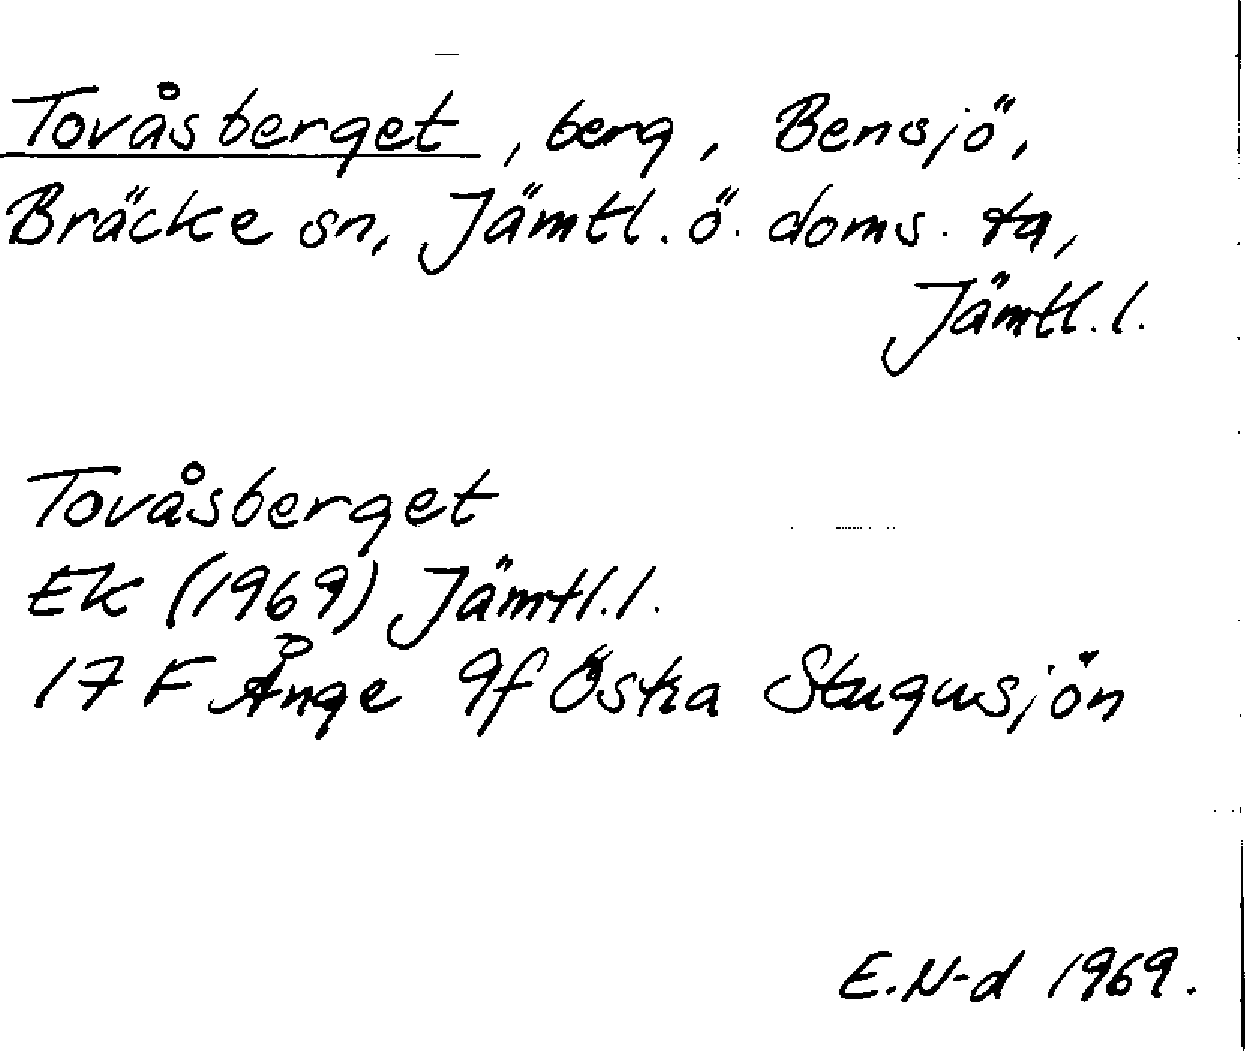 Tovåsberget, berg, Bensjö,
Bräcke sn, Jämtl. ö. doms. tg,
Jämtl. l.
Tovåsberget
EK (1969) Jämtl. l.
17 F Ånge 9f Östra Stugusjön
E. N-d 1969.